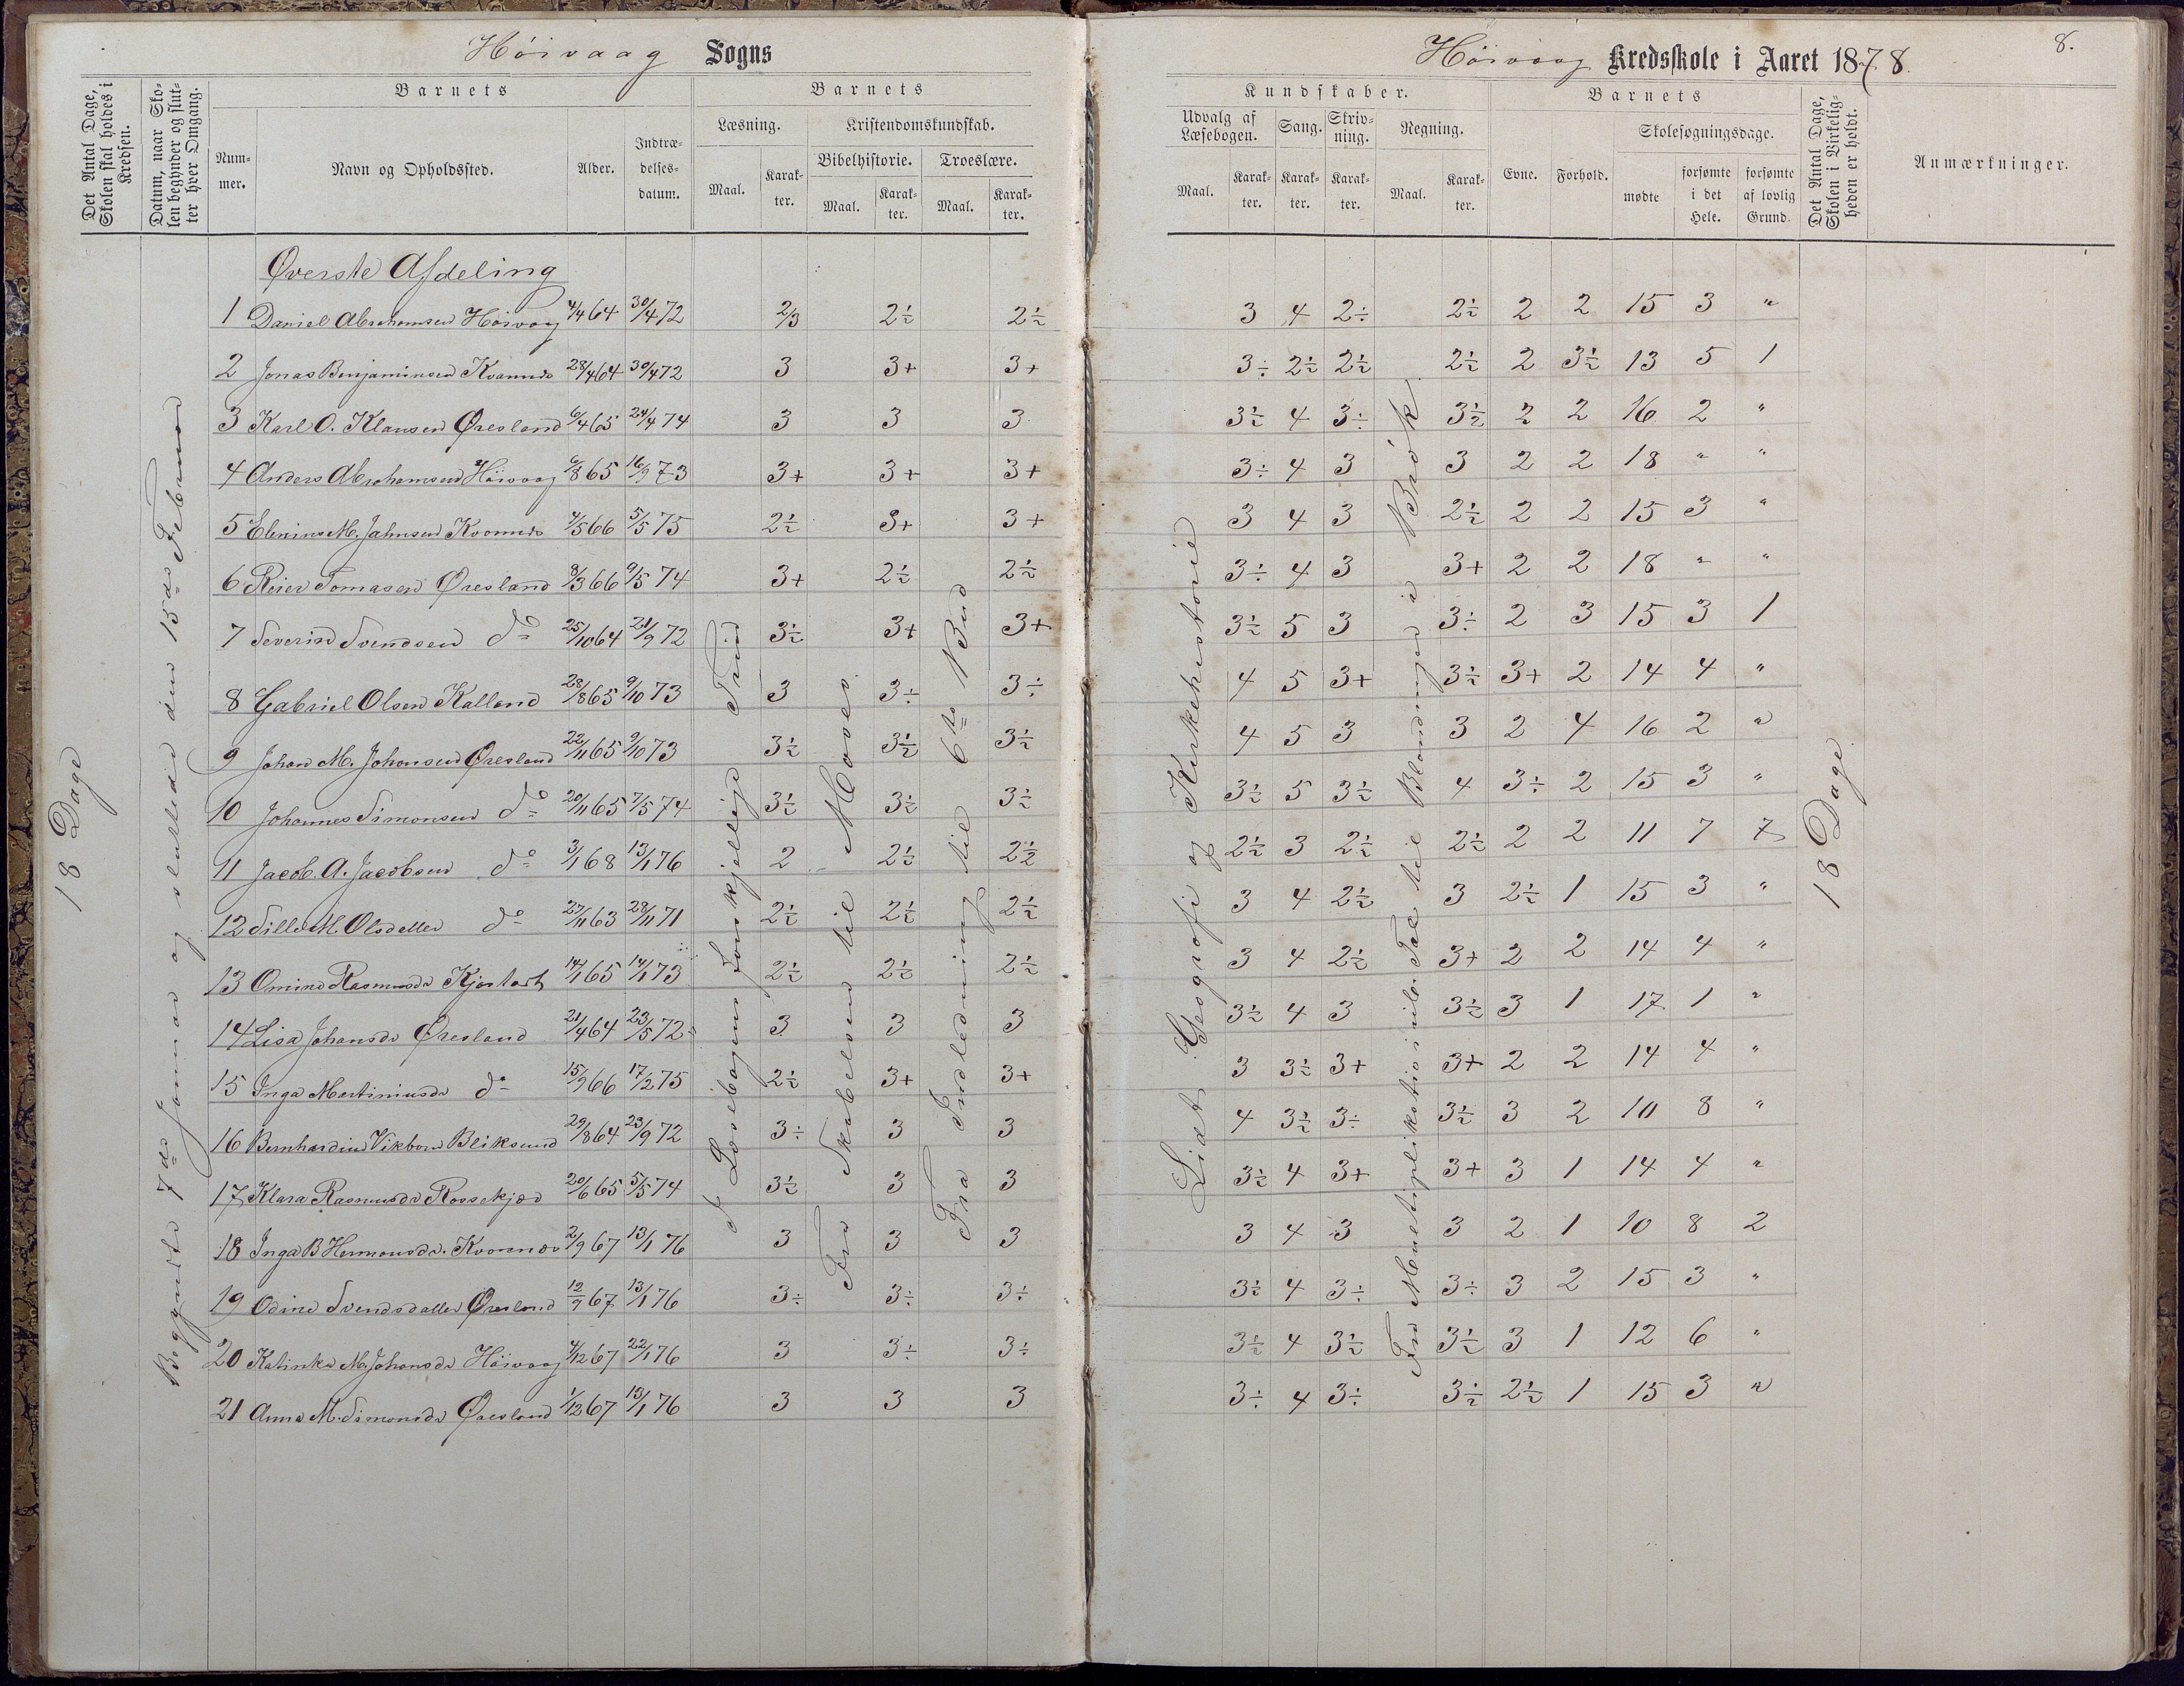 Höivaag Sogns
Höivaag Kredsskole i Aaret 1878.
8.
Det Antal Dage, Skolen skal holdes i Kredsen.
Datum, naar Skolen begynder og slutter hver Omgang.
Barnets
Nummer.
Navn og Opholdssted.
Alder.
Indtrædelsesdatum.
Barnets
Læsning.
Maal.
Karakter.
Kristendomskundskab.
Bibelhistorie.
Maal.
Karakter.
Troeslære.
Maal.
Karakter.
Kundskaber.
Udvalg af Læsebogen.
Maal.
Karakter.
Sang.
Karakter.
Skrivning.
Karakter.
Regning.
Maal.
Karakter.
Barnets
Evne.
Forhold.
Skolesøgningsdage.
mødte
forsømte i det Hele.
forsømte af lovlig Grund.
Det Antal Dage, Skolen i Virkeligheden er holdt.
Anmærkninger.
18 Dage
Begyndte 7de Januar og sluttede den 15de Februar
I Læsebogens forskjellige
Fra Skabelsen til Moses
Fra Indledning til 6te Bud
Lidt Geografi og Kirkehistorie
Fra Multiplikation i hele Tal til Blandinger i Brök
18 Dage
Øverste Afdeling
1 Daniel Abrahamsen Höivaag 4/4 64 30/4 72 2/3 2½ 2½ 3 4 2÷ 2½ 2 2 15 3 "
2 Jonas Benjaminsen Kvannes 28/4 64 30/4 72 3 3+ 3+ 3÷ 2½ 2½ 2½ 2 3½ 13 5 1
3 Karl O. Klausen Øresland 6/4 65 24/4 74 3 3 3 3½ 4 3÷ 3½ 2 2 16 2 "
4 Anders Abrahamsen Höivaag 6/8 65 16/9 73 3+ 3+ 3+ 3÷ 4 3 3 2 2 18 " "
5 Elenius M. Jahnsen Kvannes 4/5 66 5/5 75 2½ 3+ 3+ 3 4 3 2½ 2 2 15 3 "
6 Reier Tomasen Øresland 8/3 66 9/5 74 3+ 2½ 2½ 3÷ 4 3 3+ 2 2 18 " "
7 Severin Svendsen do 25/10 64 21/9 72 3½ 3+ 3+ 3½ 5 3 3÷ 2 3 15 3 1
8 Gabriel Olsen Kalland 28/8 65 9/10 73 3 3÷ 3÷ 4 5 3+ 3½ 3+ 2 14 4 "
9 Johan M. Johansen Øresland 22/11 65 9/10 73 3½ 3½ 3½ 4 5 3 3 2 4 16 2 "
10 Johannes Simonsen do 20/11 65 7/5 74 3½ 3½ 3½ 3½ 5 3½ 4 3÷ 2 15 3 "
11 Jacob. A. Jacobsen do 3/1 68 13/1 76 2 2½ 2½ 2½ 3 2½ 2½ 2 2 11 7 7
12 Sille M. Olsdatter do 27/11 63 28/11 71 2½ 2½ 2½ 3 4 2½ 3 2½ 1 15 3 "
13 Omine Rasmusdr 14/1 65 14/1 73 2½ 2½ 2½ 3 4 2½ 3+ 2 2 14 4 "
14 Lisa Johansdr Øresland 21/4 64 23/5 72 3 3 3 3½ 4 3 3½ 3 1 17 1 "
15 Inga Martiniusdr do 15/9 66 17/2 75 2½ 3+ 3+ 3 3½ 3+ 3+ 2 2 14 4 "
16 Bernhardine Vikbom Bliksund 29/8 64 23/9 72 3÷ 3 3 4 3½ 3÷ 3½ 3 2 10 8 "
17 Klara Rasmusdr 20/6 65 5/5 74 3½ 3 3 3½ 4 3+ 3+ 3 1 14 4 "
18 Inga B Hermansdr. Kvannes 2/9 67 13/1 76 3 3 3 3 4 3 3 2 1 10 8 2
19 Odine Svendsdatter Øresland 12/9 67 13/1 76 3÷ 3÷ 3÷ 3½ 4 3÷ 3÷ 3 2 15 3 "
20 Katinka M. Johansdr Höivaag 4/12 67 22/1 76 3 3÷ 3÷ 3½ 4 3½ 3½ 3 1 12 6 "
21 Anna M. Simonsdr Øresland 1/12 67 13/1 76 3 3 3 3÷ 4 3÷ 3½ 2½ 1 15 3 "